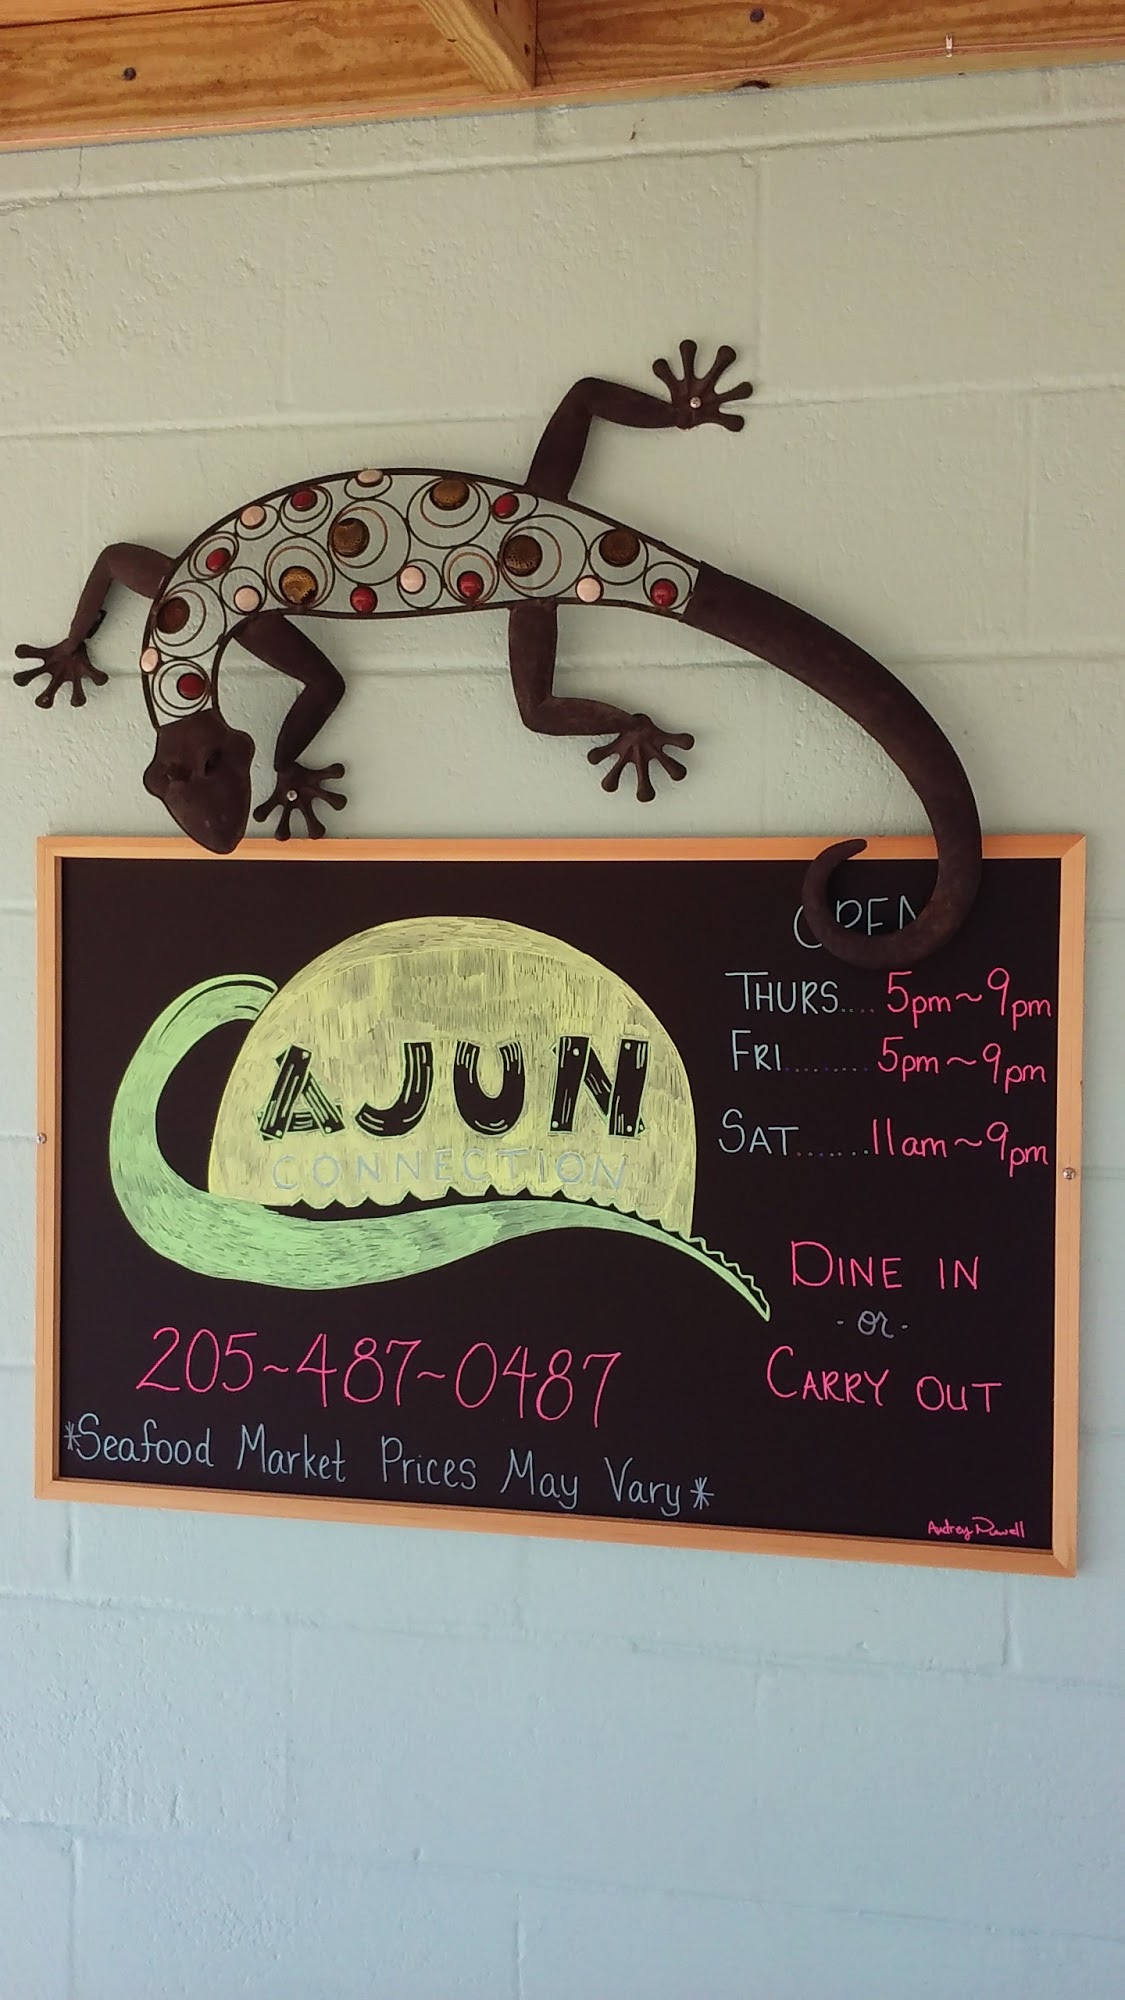 CAJUN
CONNECTION
205~487~0487
*Seafood Market Prices May Vary*
OPEN
THURS.... 5pm~9pm
FRI......... 5pm~9pm
SAT.......11am~9pm
DINE IN
-or-
CARRY OUT
Audrey Powell